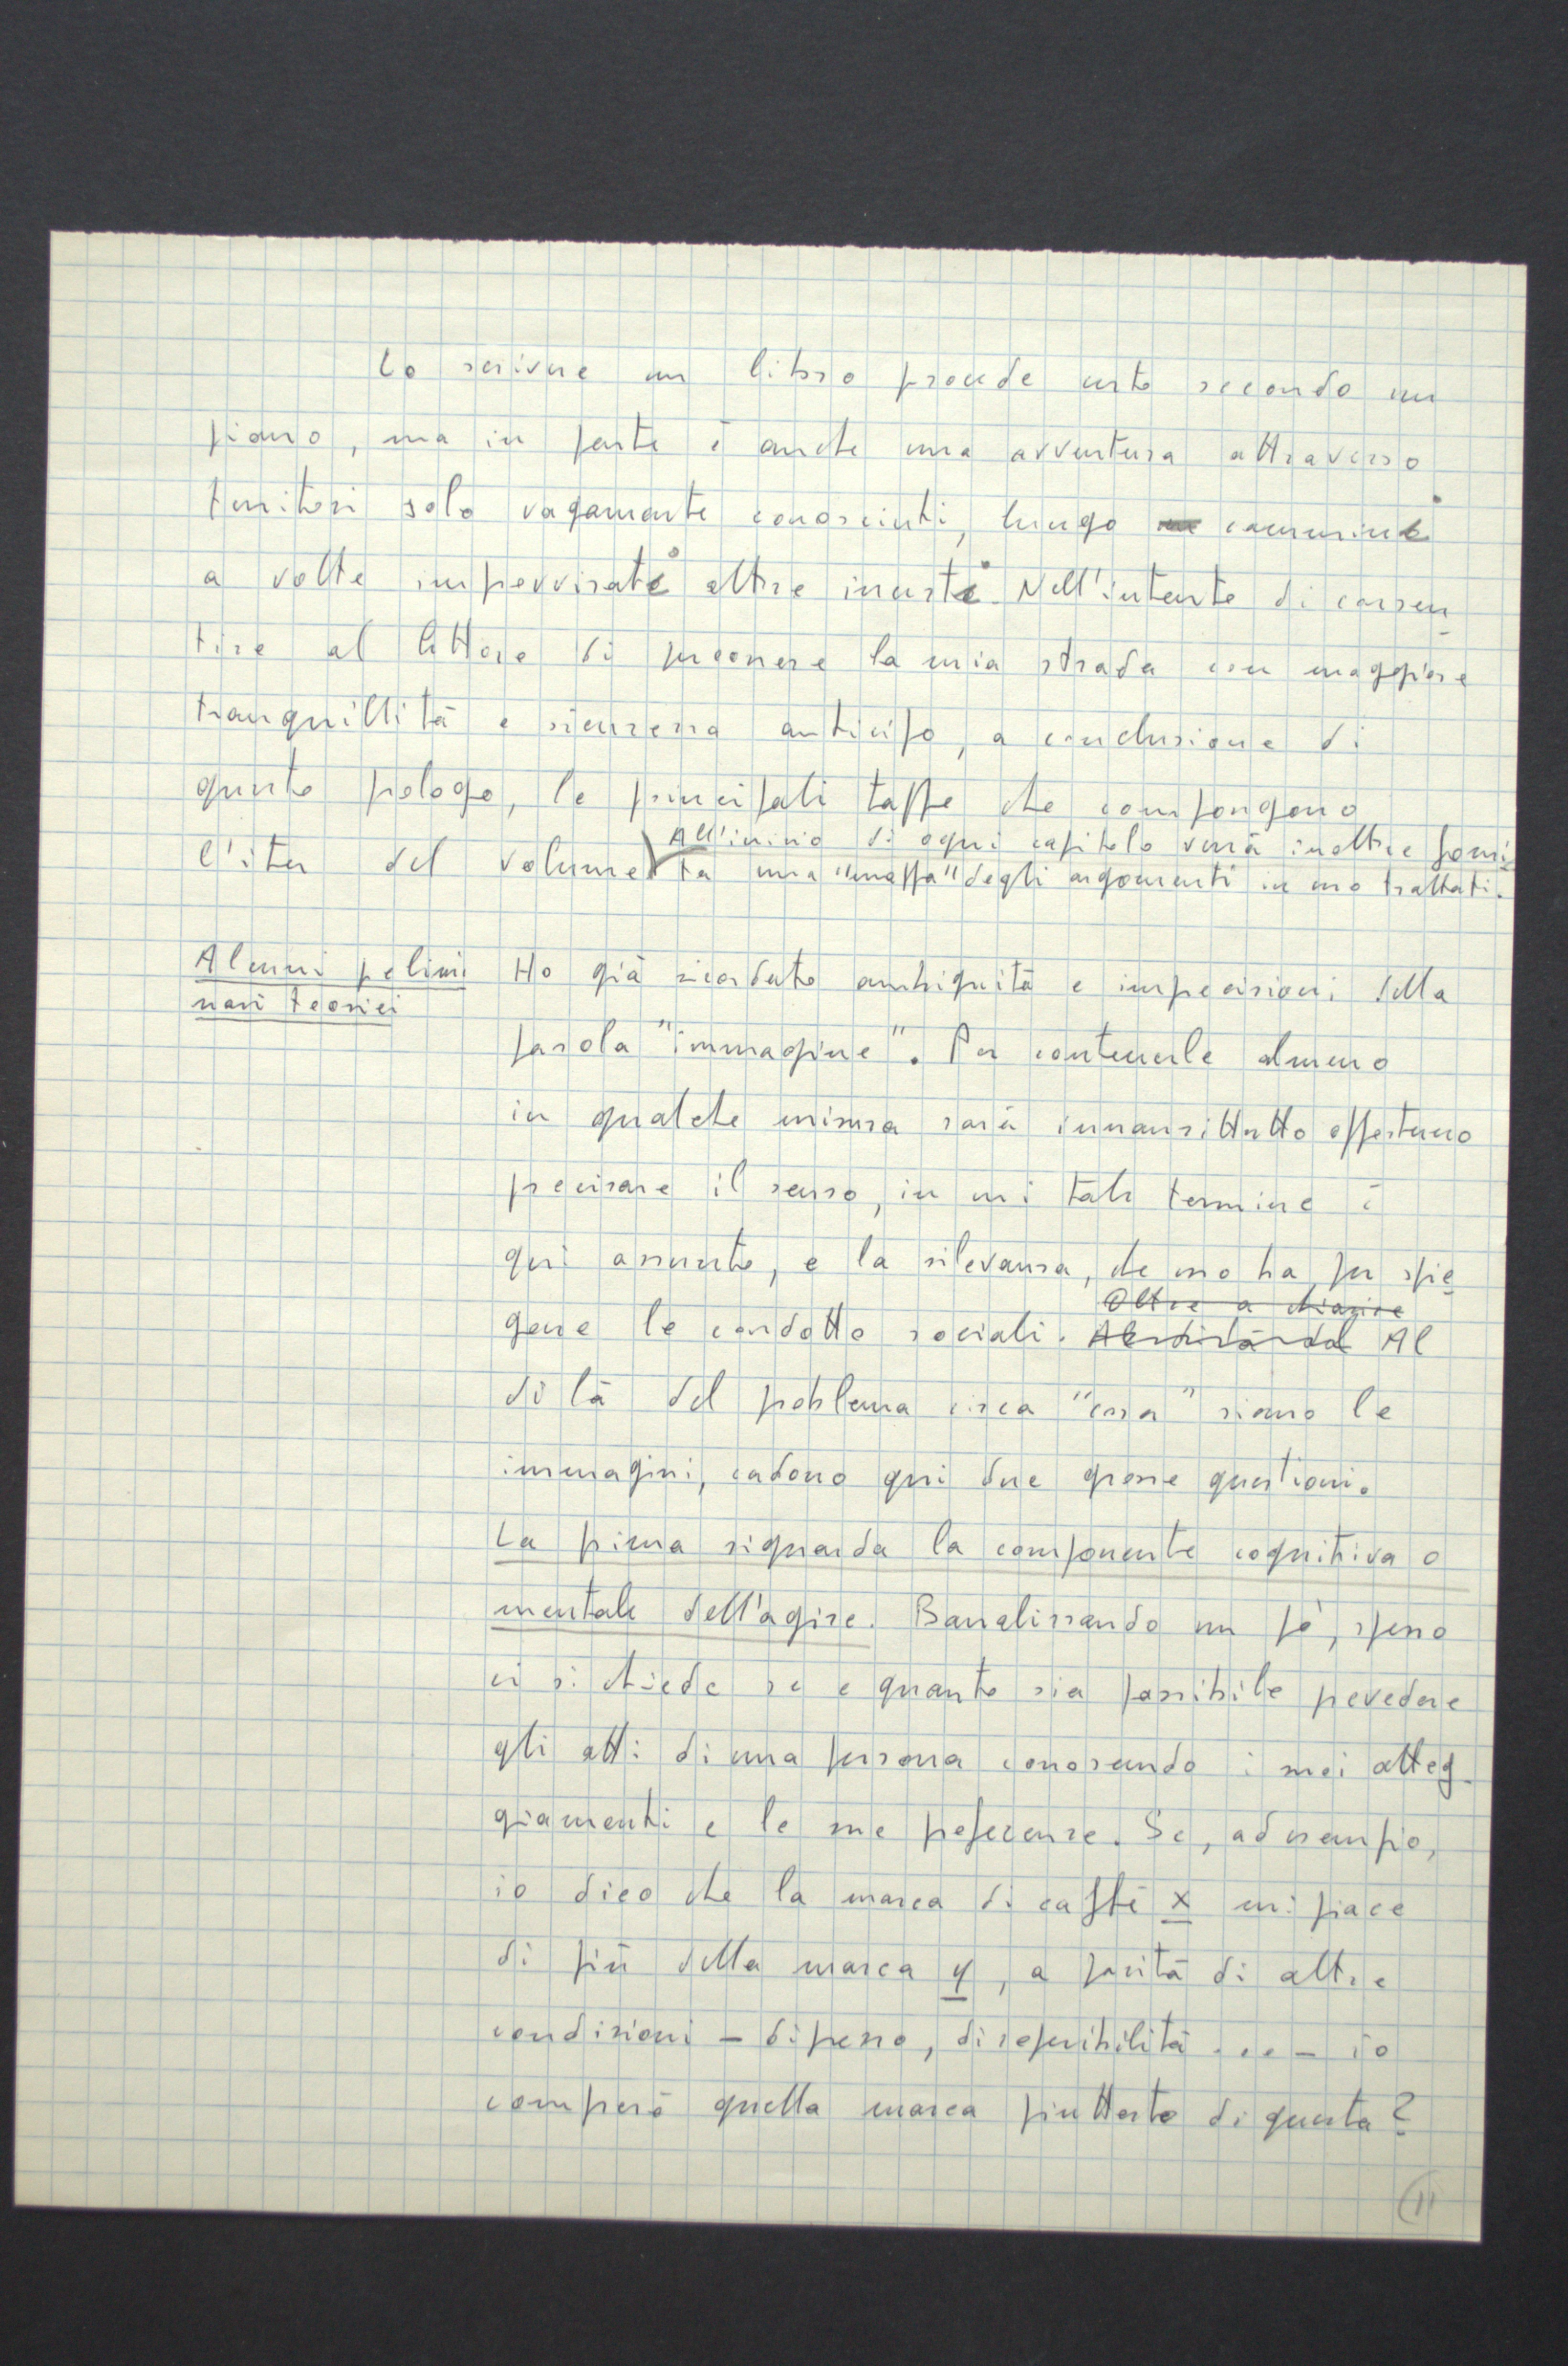 Lo scrivere un libro procede certo secondo un
piano, ma in parte è anche una avventura attraverso
territori solo vagamente conosciuti, lungo cammini
a volte improvvisati altre incerti. Nell'intento di consen
tire al lettore di percorrere la mia strada con maggiore
tranquillità e sicurezza anticipo, a conclusione di
questo prologo, le principali tappe che compongono
All'inizio di ogni capitolo verrà inoltre forni
l'iter del volume ta una "mappa" degli argomenti in esso trattati.
Alcuni prelimi
nari teorici
Ho già ricordato ambiguità e imprecisioni della
parola "immagine". Per contenerle almeno
in qualche misura sarà innanzittutto opportuno
precisare il senso, in cui tale termine è
qui assunto, e la rilevanza, che esso ha per spie
Oltre a chiarire
gare le condotte sociali. Al di là del Al
di là del problema circa "cosa" siano le
immagini, cadono qui due grosse questioni.
La prima riguarda la componente cognitiva o
mentale dell'agire. Banalizzando un pò, spesso
ci si chiede se e quanto sia possibile prevedere
gli atti di una persona conoscendo i suoi atteg-
giamenti e le sue preferenze. Se, ad esempio,
io dico che la marca di caffè x mi piace
di più della marca y, a parità di altre
condizioni – di prezzo, di reperibilità ... – io
comprerò quella marca piuttosto di questa?
11